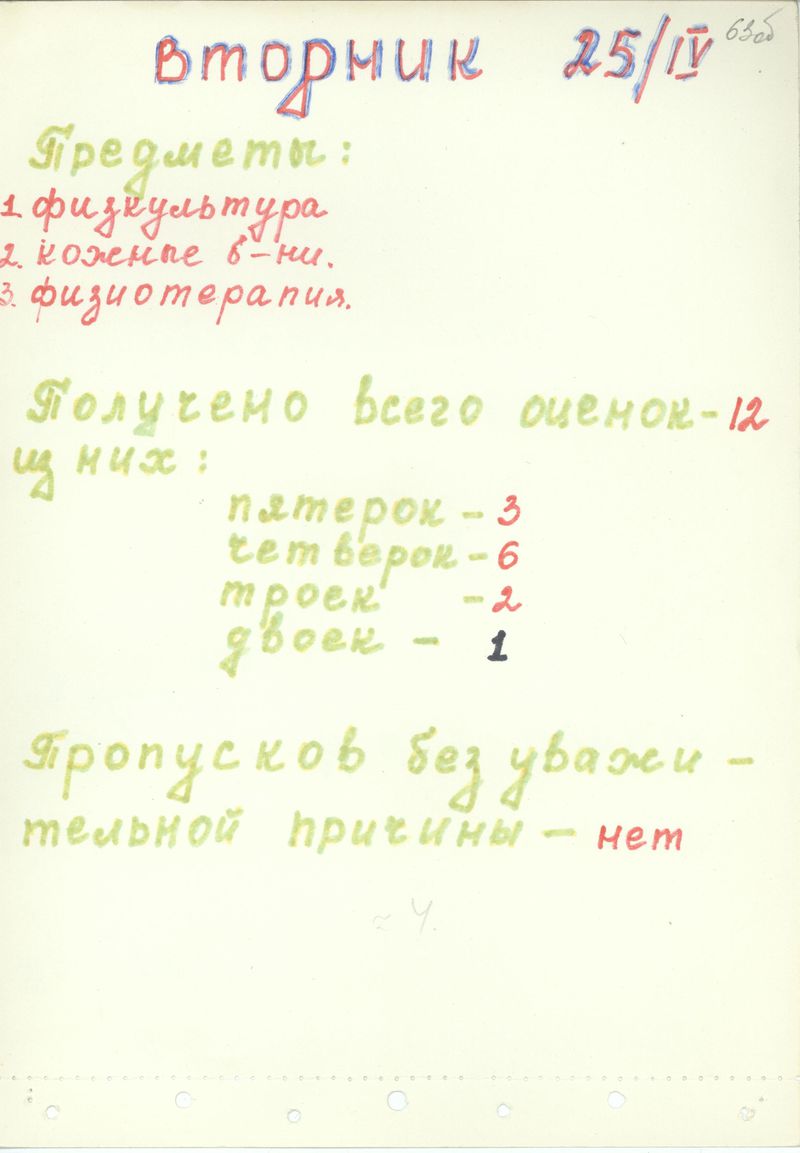 63об
Вторник 25/IV
Предметы:
1. физкультура
2. кожные б-ни.
3. физиотерапия.
Получено всего оценок - 12
из них:
пятерок - 3
четверок - 6
троек - 2
двоек - 1
Пропусков без уважи-
тельной причины - нет
≈ 4.